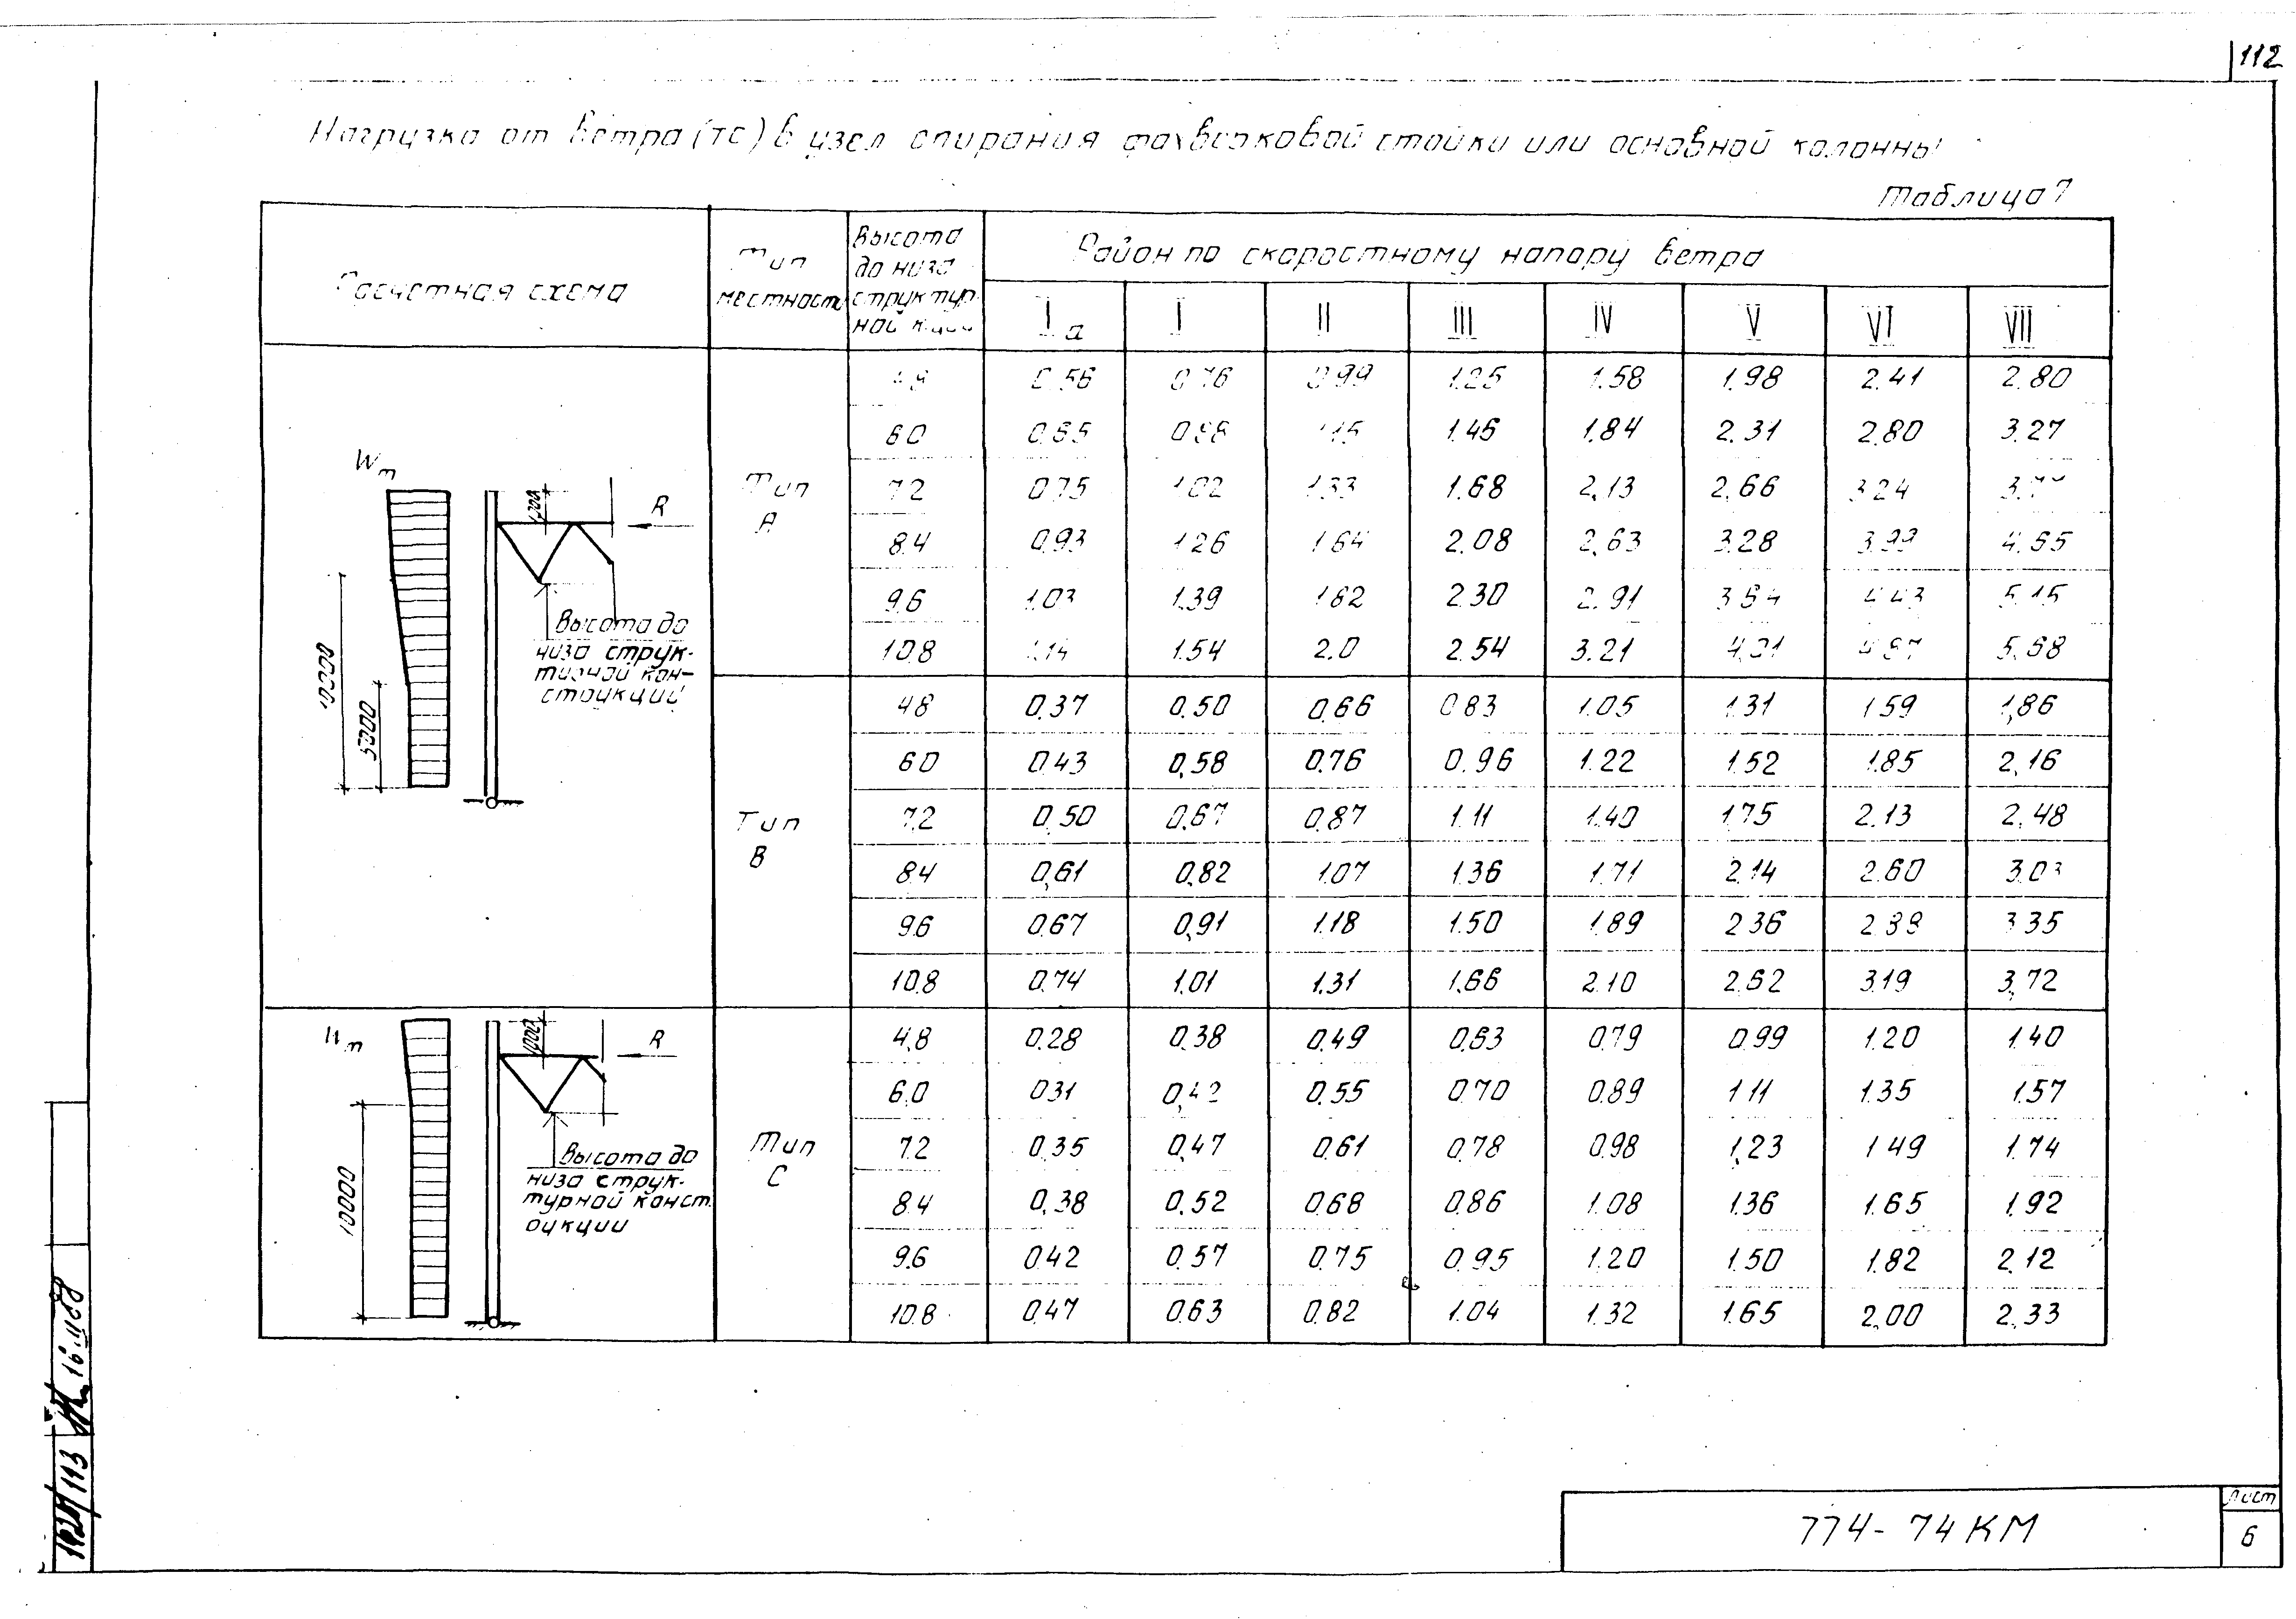 112
Нагрузка от ветра (тс) в узел опирания фахверковой стойки или основной колонны
Таблица 7
Расчетная схема
Тип
местности
Высота
до низа
структур
ной к-ции
Район по скоростному напору ветра
Iа I II III IV V VI VII
Wm
1200
R
Высота до
низа струк-
турной кон-
струкции
10000
5000
Тип
А
4.8 0.56 0.76 0.99 1.25 1.58 1.98 2.41 2.80
6.0 0.65 1.46 1.84 2.31 2.80 3.27
7.2 0.75 1.02 1.33 1.68 2.13 2.66 3.24
8.4 0.93 1.26 1.64 2.08 2.63 3.28 3.99 4.65
9.6 1.03 1.39 1.82 2.30 2.91 3.64 4.43 5.15
10.8 1.14 1.54 2.0 2.54 3.21 4.01 4.87 5.68
Тип
В
4.8 0.37 0.50 0.66 0.83 1.05 1.31 1.59 1,86
6.0 0.43 0,58 0.76 0.96 1.22 1.52 1.85 2,16
7.2 0.50 0.67 0.87 1.11 1.40 1.75 2.13 2.48
8.4 0,61 0,82 1.07 1.36 1.71 2.14 2.60 3.03
9.6 0.67 0,91 1.18 1.50 1.89 2.36 3.35
10.8 0.74 1.01 1.31 1.66 2.10 2.62 3.19 3,72
Wm
1200
R
Высота до
низа струк-
турной конст
рукции
10000
Тип
С
4,8 0.28 0.38 0.49 0.63 0.79 0.99 1.20 1.40
6.0 0.31 0,42 0.55 0.70 0.89 1.11 1.35 1.57
7.2 0.35 0,47 0.61 0.78 0.98 1,23 1.49 1.74
8.4 0,38 0.52 0.68 0.86 1.08 1.36 1.65 1.92
9.6 0.42 0.57 0.75 0.95 1.20 1.50 1.82 2.12
10.8 0.47 0.63 0.82 1.04 1.32 1.65 2,00 2.33
774-74КМ
Лист
6